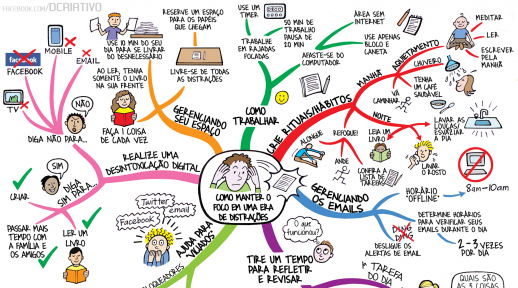 FACEBOOK.COM/OCRIATIVO
MOBILE
facebook
FACEBOOK
EMAIL
TV
NÃO
DIGA NÃO PARA...
USE 10 MIN DO SEU
DIA PARA SE LIVRAR
DO DESNECESSÁRIO
RESERVE UM ESPAÇO
PARA OS PAPÉIS
QUE CHEGAM
AO LER, TENHA
SOMENTE O LIVRO
NA SUA FRENTE
LIVRE-SE DE TODAS
AS DISTRAÇÕES
FAÇA 1 COISA
DE CADA VEZ
GERENCIANDO
SEU ESPAÇO
USE UM
TIMER
50 MIN DE
TRABALHO
PAUSA 20
MIN
TRABALHE
EM RAJADAS
FOCADAS
ÁREA SEM
INTERNET
USE APENAS
BLOCO E
CANETA
AFASTE-SE DO
COMPUTADOR
COMO
TRABALHAR
CRIE RITUAIS/HÁBITOS
MANHÃ
AQUIETAMENTO
MEDITAR
LER
ESCREVER
PELA
MANHÃ
CHUVEIRO
TENHA
UM CAFÉ
SAUDÁVEL
VÁ
CAMINHAR
NOITE
LAVAR AS
LOUÇAS/
ESVAZIAR A
PIA
LEIA UM
LIVRO
LAVAR
O ROSTO
CONFIRA A
LISTA DE
TAREFAS
REFOQUE!
ALONGUE
ANDE
REALIZE UMA
DESINTOXICAÇÃO DIGITAL
SIM
DIGA
SIM PARA...
CRIAR
PASSAR MAIS
TEMPO COM
A FAMÍLIA E
OS AMIGOS
LER UM
LIVRO
COMO MANTER O
FOCO EM UMA ERA
DE DISTRAÇÕES
GERENCIANDO
OS EMAILS
HORÁRIO
"OFFLINE"
8am-10am
DETERMINE HORÁRIOS
PARA VERIFICAR SEUS
EMAILS DURANTE O DIA
2-3 VEZES
POR DIA
DING
DING
DESLIGUE OS
ALERTAS DE EMAIL
Twitter
email
Facebook
AJUDA PARA
"VICIADOS"
BLOQUEADORES
O que
funcionou?
TIRE UM TEMPO
PARA REFLETIR
E REVISAR
1ª TAREFA
DO DIA
QUAIS SÃO
AS 3 COISAS